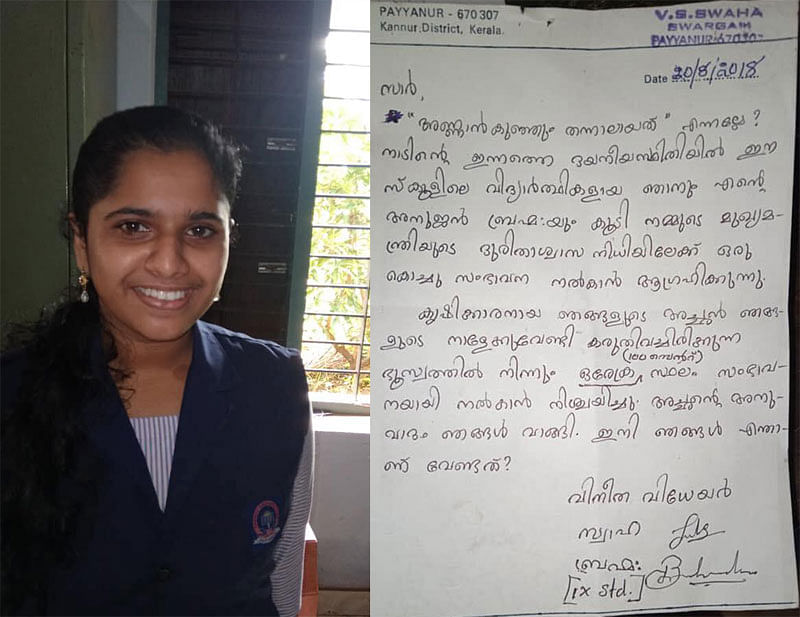 PAYYANUR - 670307
Kannur District, Kerala.
V.S.SWAHA
SWARGAM
PAYYANUR-670307
Date 20/8/2018
സാർ,
"അണ്ണാൻകുഞ്ഞും തന്നാലായത്" എന്നല്ലേ?
നാടിന്റെ ഇന്നത്തെ ദയനീയസ്ഥിതിയിൽ ഈ
സ്കൂളിലെ വിദ്യാർത്ഥികളായ ഞാനും എന്റെ
അനുജൻ ബ്രഹ്മ:യും കൂടി നമ്മുടെ മുഖ്യമ-
ന്ത്രിയുടെ ദുരിതാശ്വാസ നിധിയിലേക്ക് ഒരു
കൊച്ചു സംഭാവന നൽകാൻ ആഗ്രഹിക്കുന്നു.
കൃഷിക്കാരനായ ഞങ്ങളുടെ അച്ഛൻ ഞങ്ങ-
ളുടെ നാളേക്കുവേണ്ടി കരുതിവച്ചിരിക്കുന്ന
(100 സെന്റ്)
ഭൂസ്വത്തിൽ നിന്നും ഒരേക്ര സ്ഥലം സംഭാവ-
നയായി നൽകാൻ നിശ്ചയിച്ചു. അച്ഛന്റെ അനു-
വാദം ഞങ്ങൾ വാങ്ങി. ഇനി ഞങ്ങൾ എന്താ-
ണ് വേണ്ടത്?
വിനീത വിധേയർ
സ്വാഹ
ബ്രഹ്മ:
[ix std.]